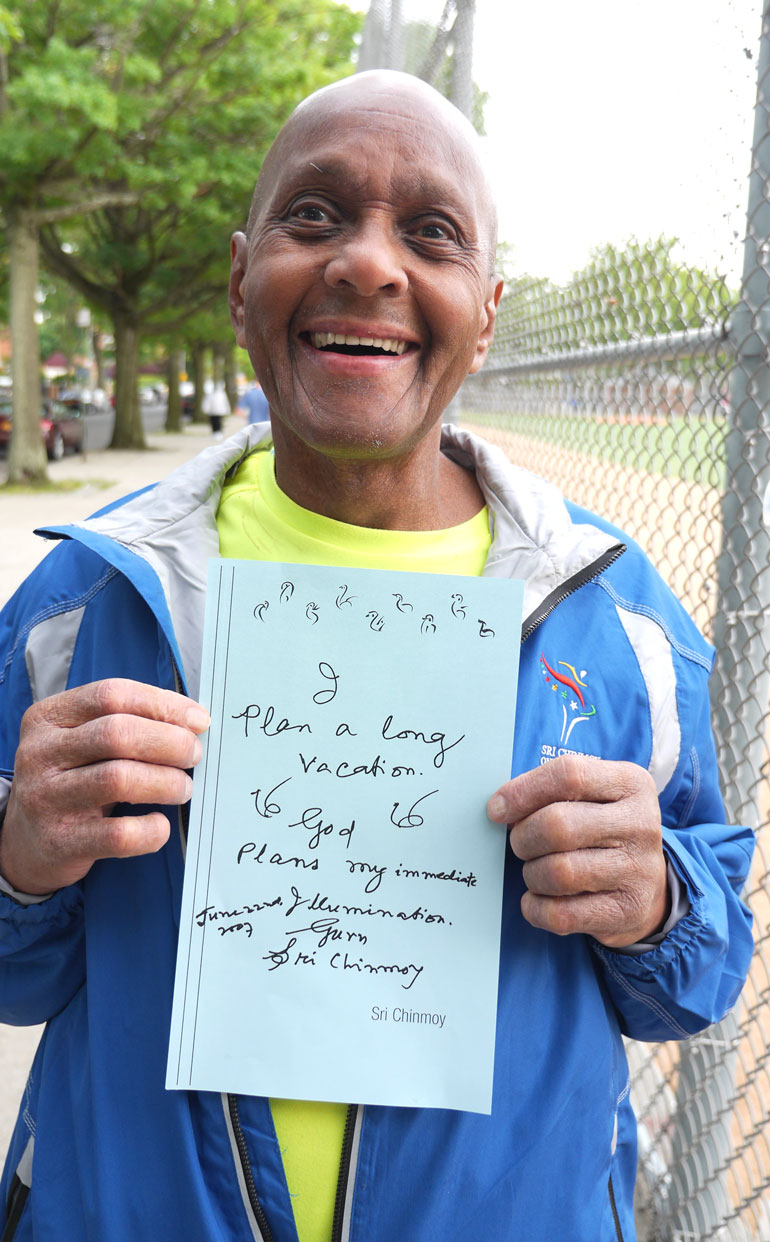 SRI CHINMOY
I
Plan a long
Vacation.
God
Plans my immediate
Illumination.
June 22nd.
2007
Guru
Sri Chinmoy
Sri Chinmoy